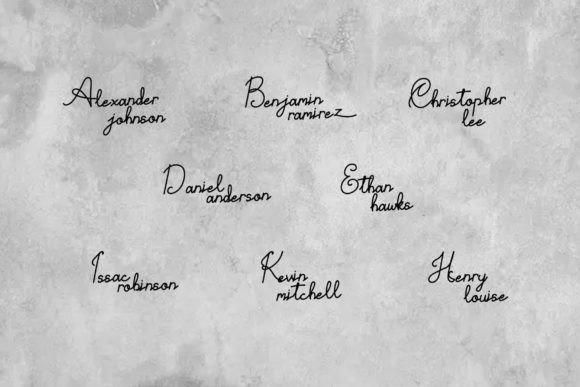 Alexander
johnson
Benjamin
ramirez
Christopher
lee
Daniel
anderson
Ethan
hawks
Issac
robinson
Kevin
mitchell
Henry
louise